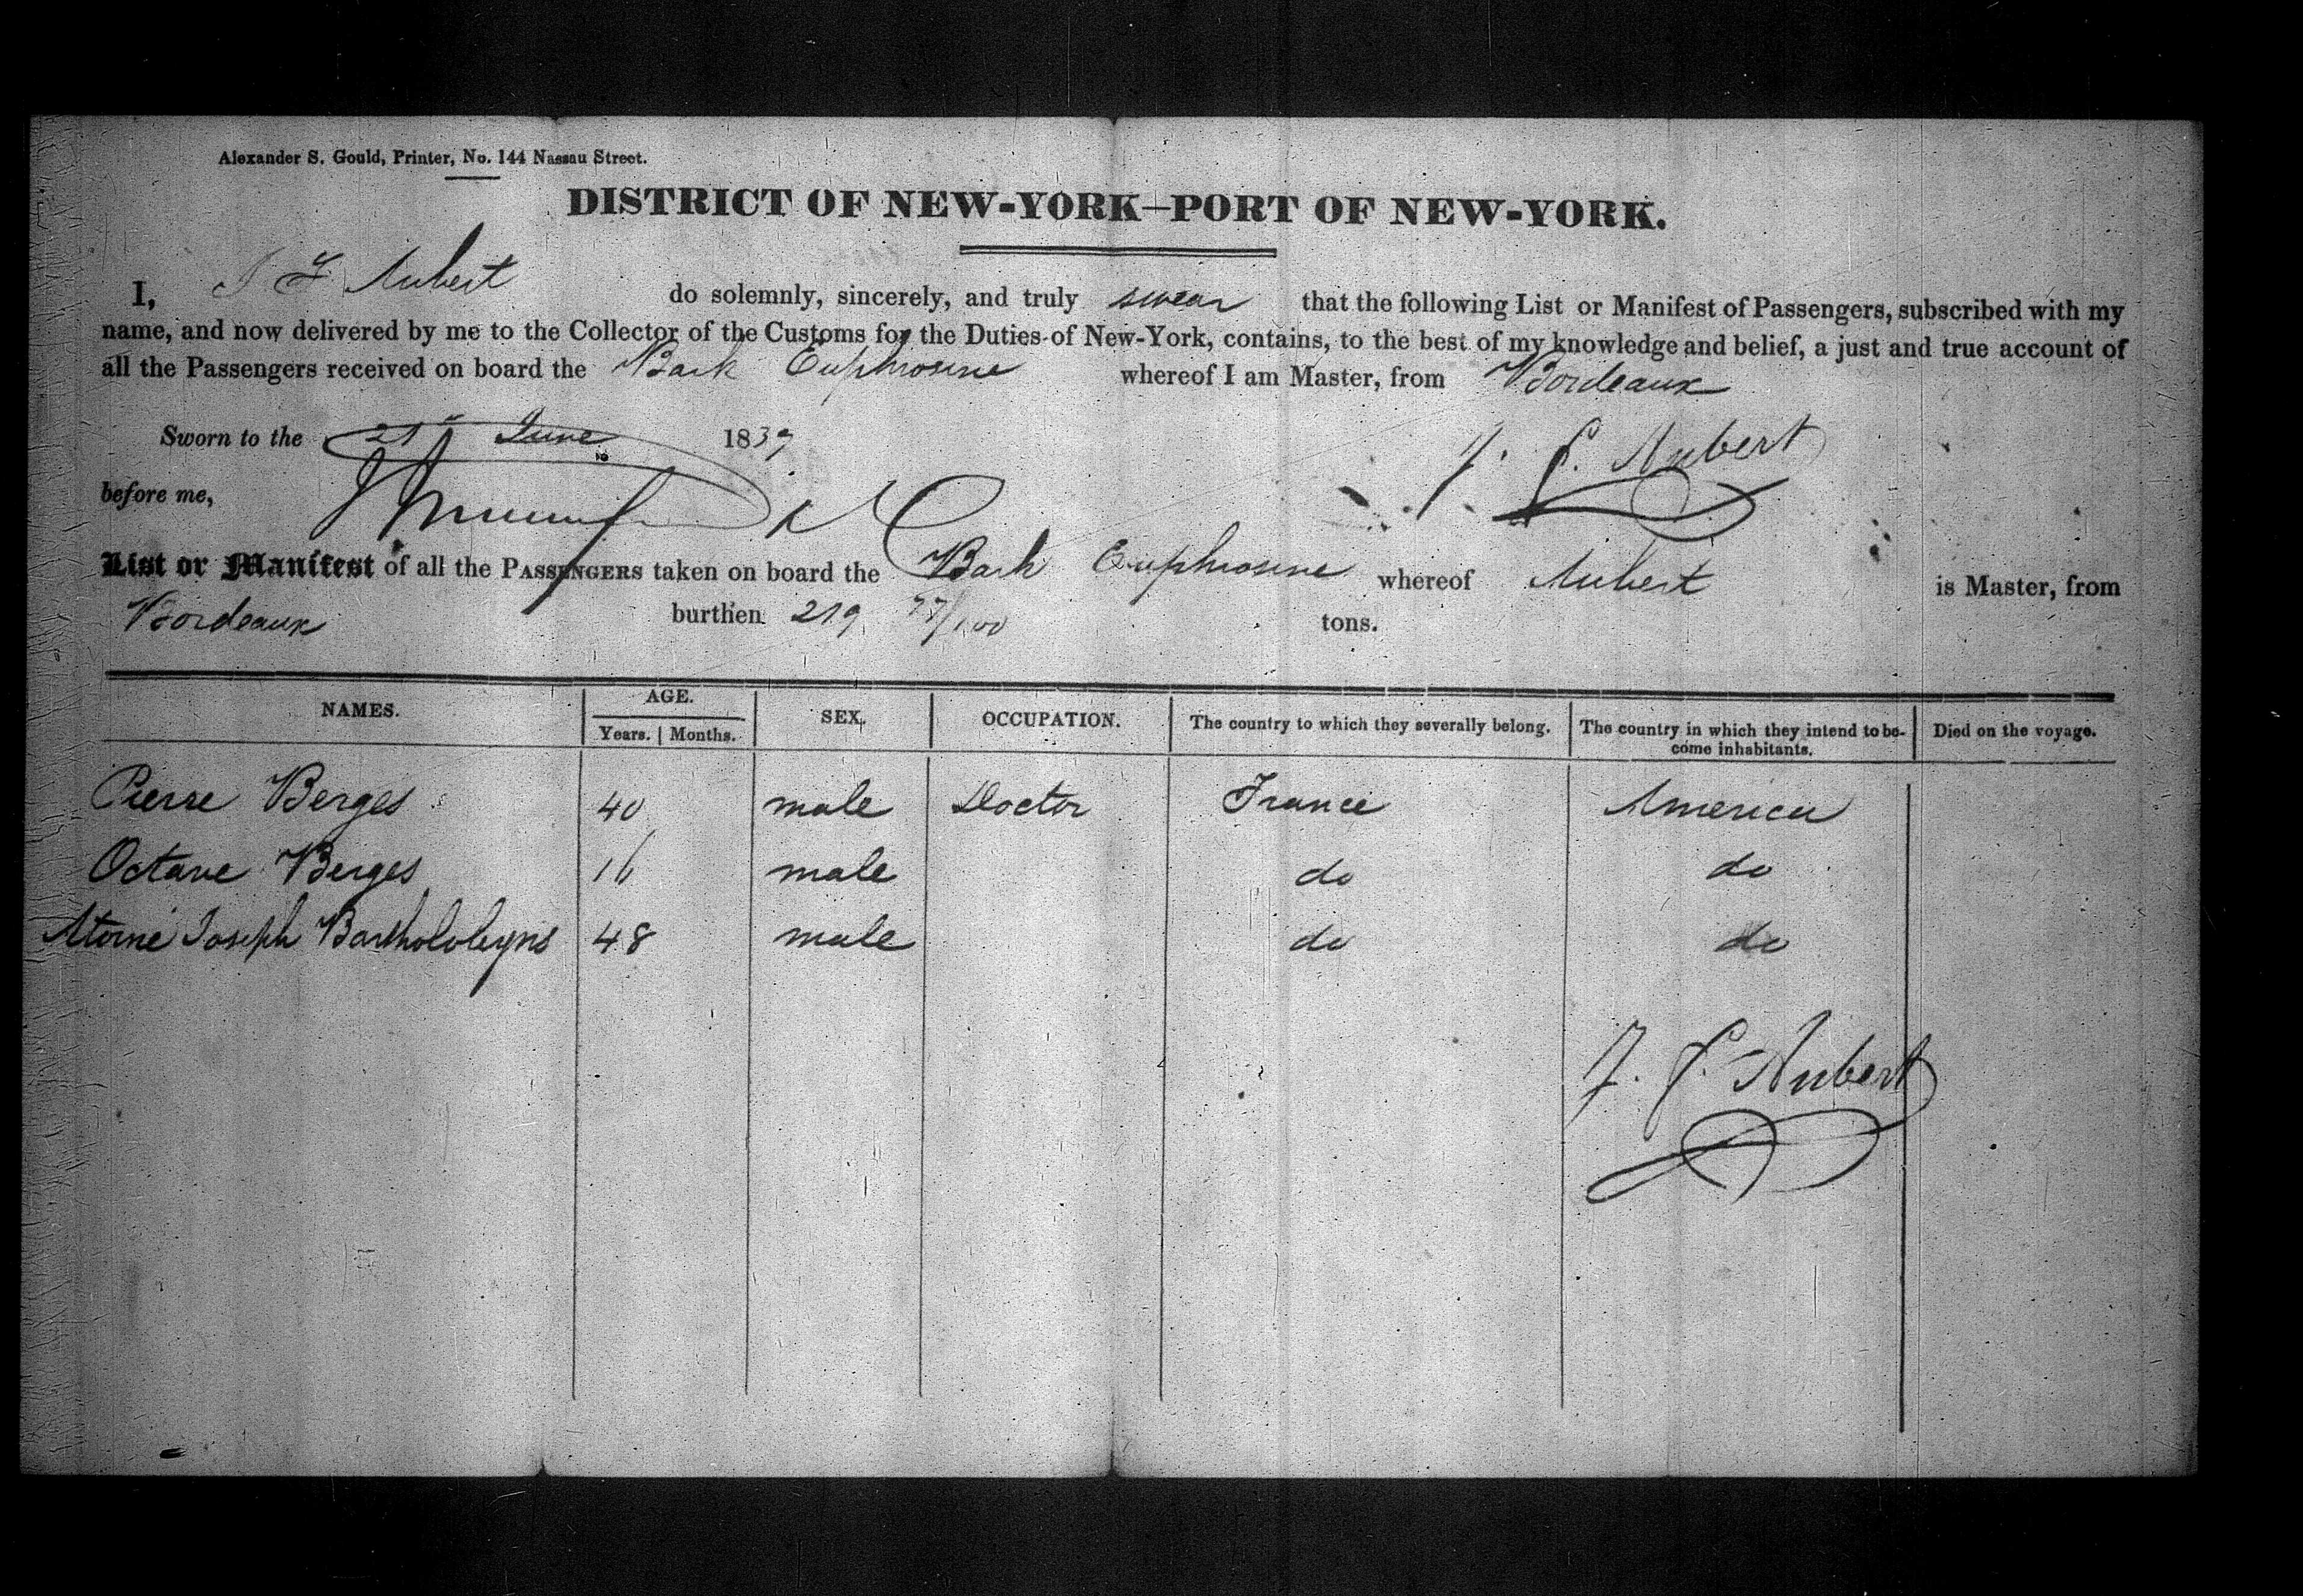 Alexander S. Gould, Printer, No. 144 Nassau Street.
DISTRICT OF NEW-YORK—PORT OF NEW-YORK.
I, J F Aubert do solemnly, sincerely, and truly swear that the following List or Manifest of Passengers, subscribed with my
name, and now delivered by me to the Collector of the Customs for the Duties of New-York, contains, to the best of my knowledge and belief, a just and true account of
all the Passengers received on board the Bark Euphrosine whereof I am Master, from Bordeaux
Sworn to the 21st June 1839
before me,
J. F. Aubert
List or Manifest of all the PASSENGERS taken on board the Bark Euphrosine whereof Aubert is Master, from
Bordeaux burthen 219 77/100 tons.
NAMES. AGE. SEX. OCCUPATION. The country to which they severally belong. The country in which they intend to be- Died on the voyage.
Years. Months. come inhabitants.
Pierre Berges 40 male Doctor France America
Octave Berges 16 male do do
Joseph 48 male do do
J. F. Aubert